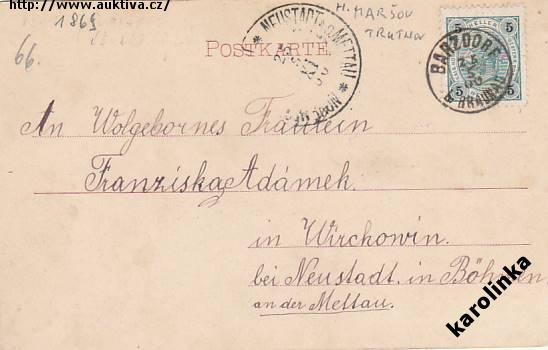 http://www.auktiva.cz/
1869
66.
H. MARŠOV
TRUTNOV
POSTKARTE.
NEUSTADT a.d. METTAU
BARZDORF
b. BRAUNAU
5 5
5 5
An Wolgebornes Fräulein
Franziska Adámek.
in Wrchowin.
bei Neustadt in Böhmen
an der Mettau.
karolinka